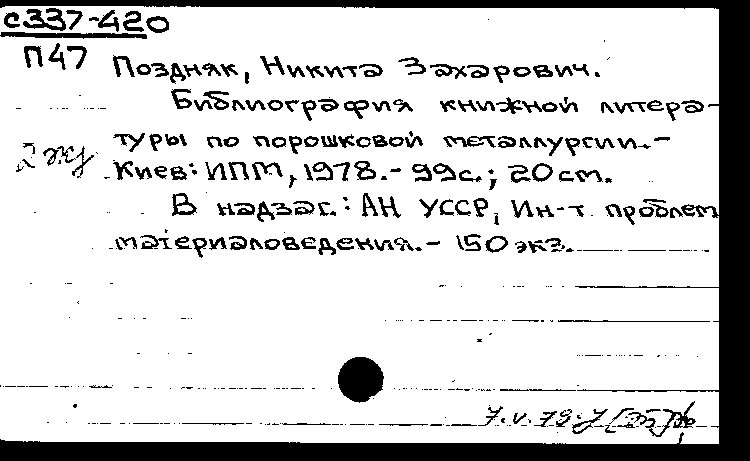 с337-420
П47
Поздняк, Никита Захарович.
Библиография книжной литера-
туры по порошковой металлургии.-
2 экз
Киев: ИПМ, 1978.- 99с.; 20см.
В надзаг.: АН УССР, Ин-т проблем
материаловедения.- 150 экз.
7.V.79.